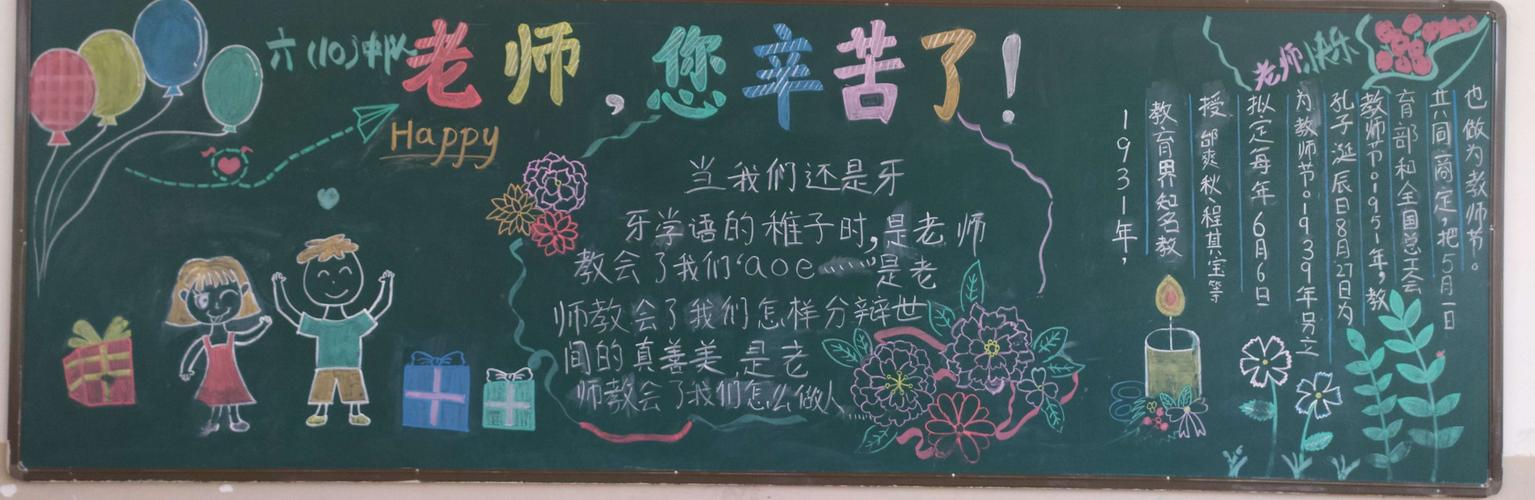 六(10)中队
老师,您辛苦了!
Happy
当我们还是牙
牙学语的稚子时,是老师
教会了我们“aoe……”是老
师教会了我们怎样分辩世
间的真善美,是老
师教会了我们怎么做人……
老师,快乐
1931年,
教育界知名教
授邰爽秋、程其宝等
拟定每年6月6日
为教师节。1939年
孔子诞辰日8月27日为
教师节。1951年,教
育部和全国总工会
共同商定把5月一日
也做为教师节。